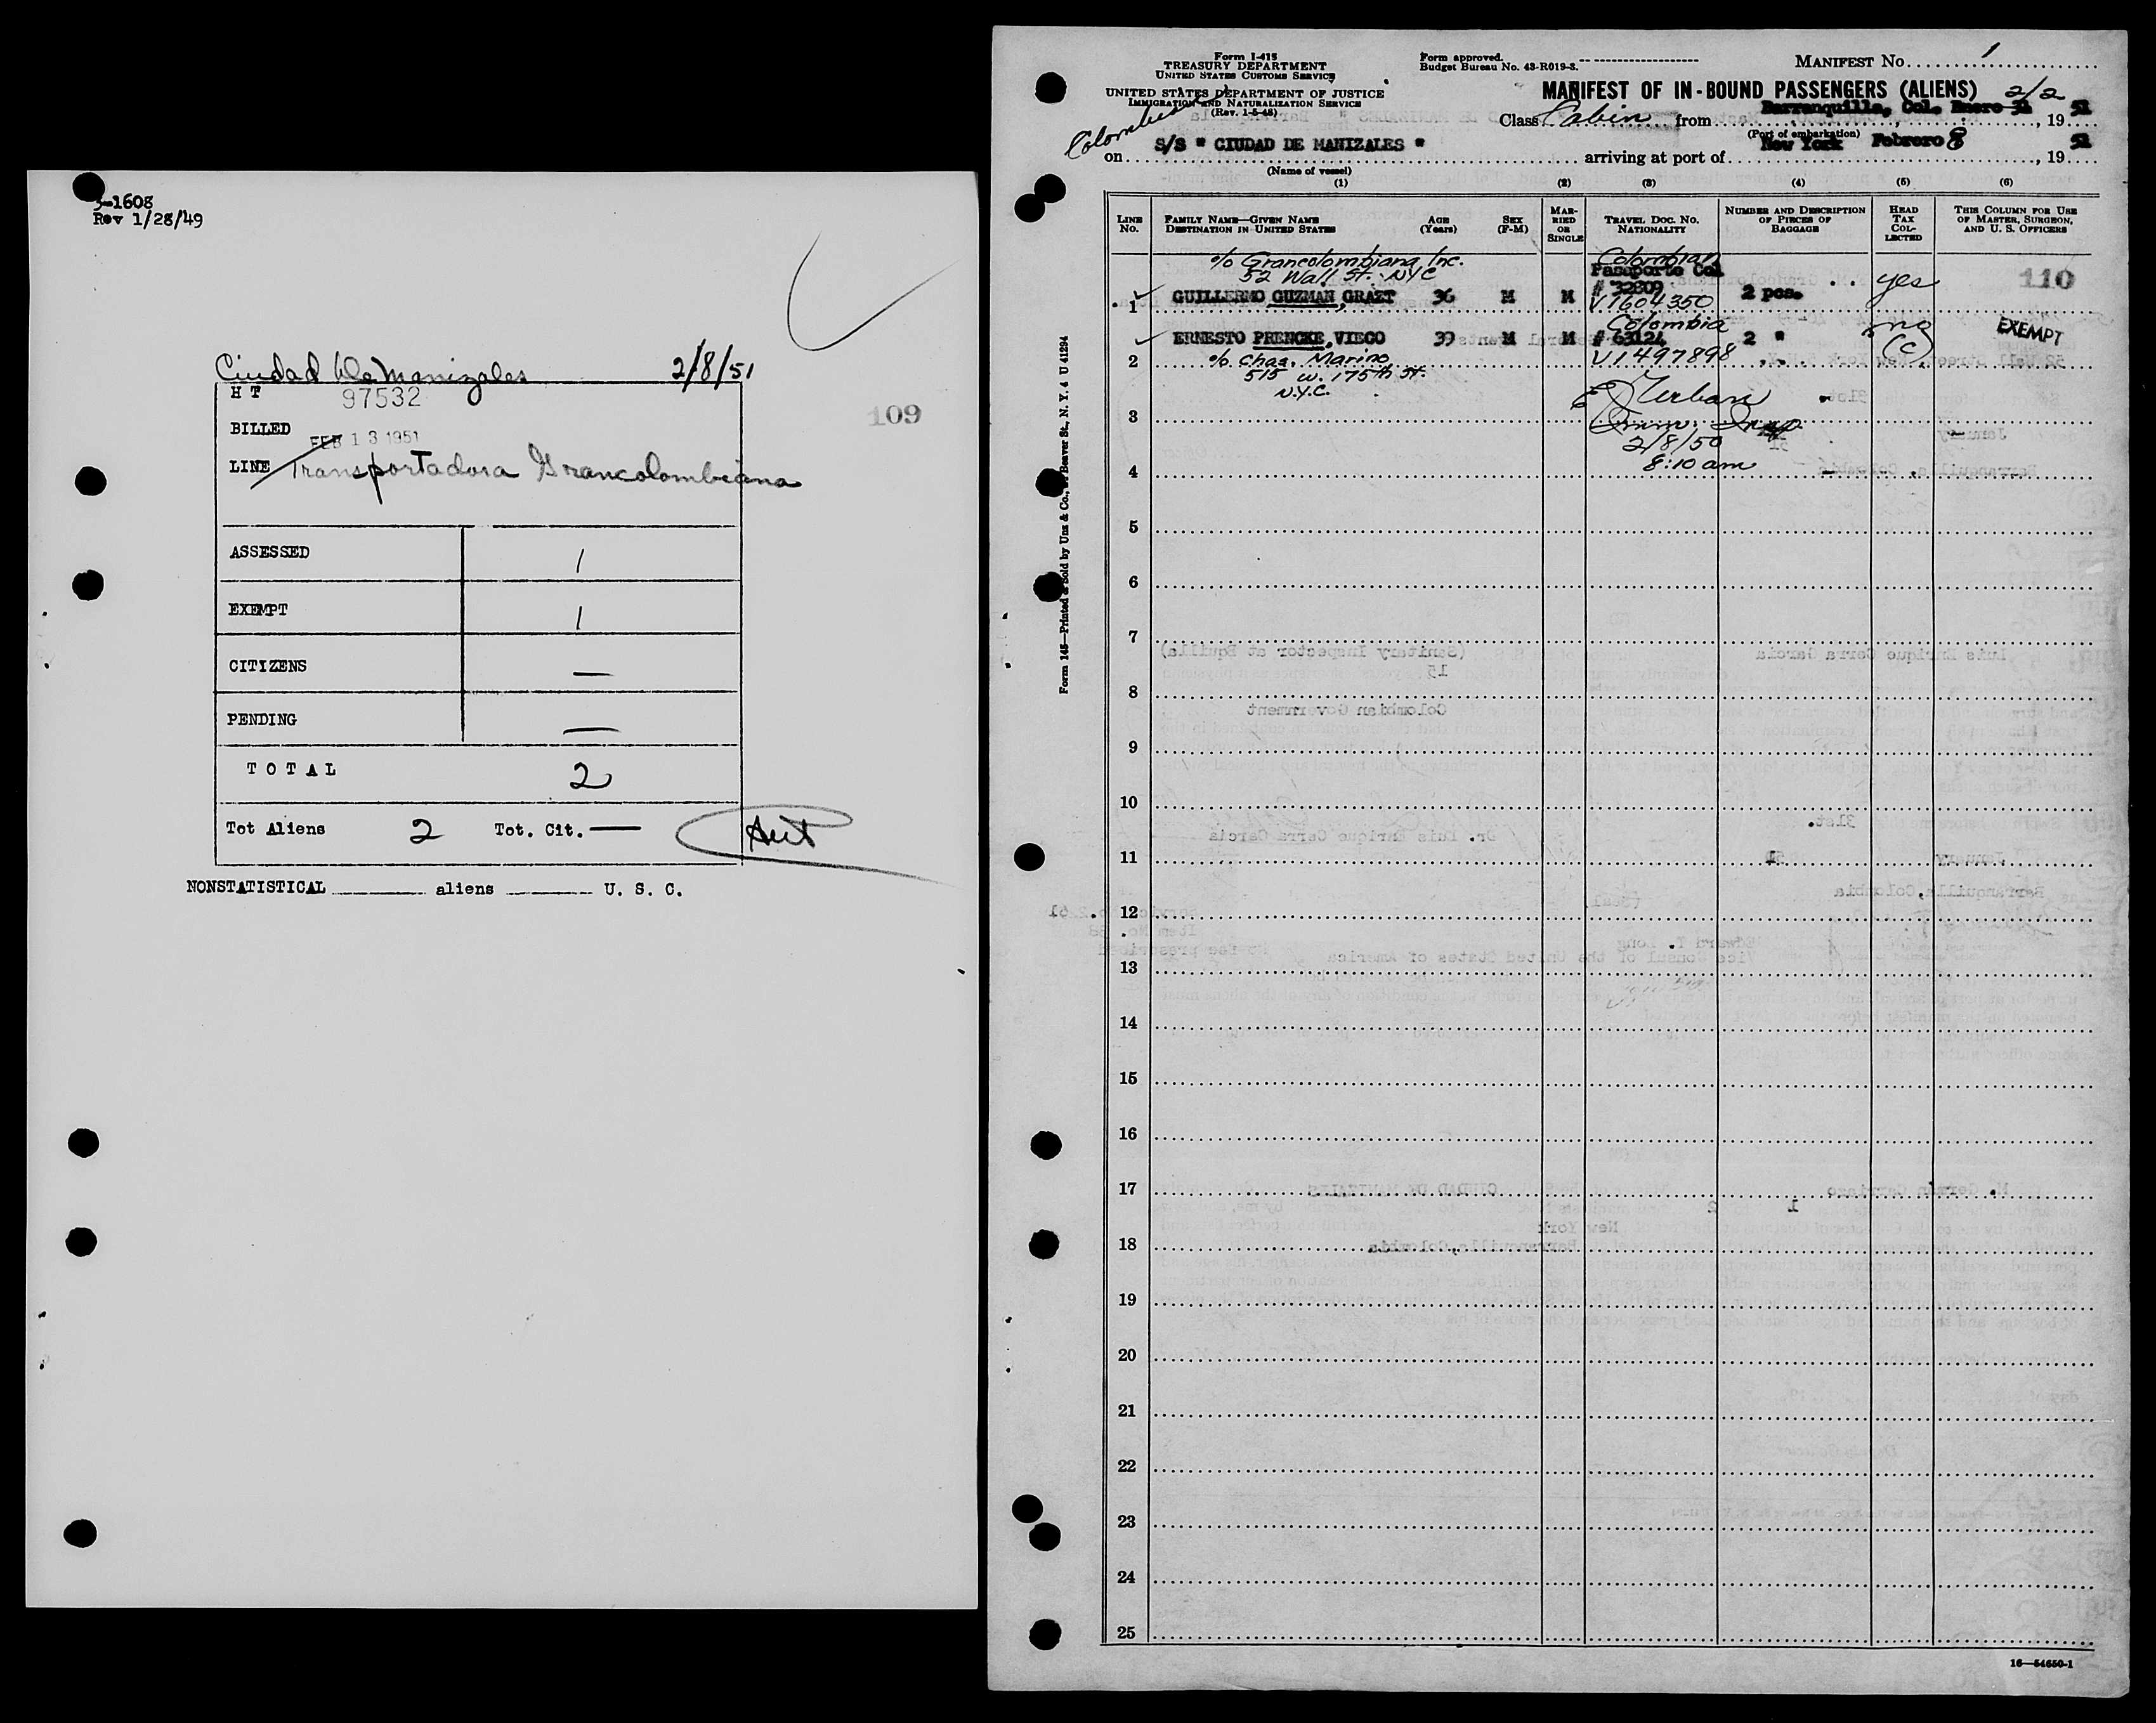 3-1608
Rev 1/28/49
Ciudad de Manizales 2/8/51
H T 97532
BILLED FEB 13 1951
LINE Transportadora Grancolombiana
109
ASSESSED 1
EXEMPT 1
CITIZENS —
PENDING —
T O T A L 2
Tot Aliens 2 Tot. Cit. —
NONSTATISTICAL ____ aliens ____ U. S. C.
Form I-415
TREASURY DEPARTMENT
UNITED STATES CUSTOMS SERVICE
UNITED STATES DEPARTMENT OF JUSTICE
IMMIGRATION AND NATURALIZATION SERVICE
(Rev. 1-5-48)
Form approved.
Budget Bureau No. 43-R019-3.
MANIFEST No. 1
MANIFEST OF IN-BOUND PASSENGERS (ALIENS)
2/2
Class Cabin from Barranquilla, Col. Enero 31, 19 51
(Port of embarkation)
Colombian
on S/S " CIUDAD DE MANIZALES " arriving at port of New York Febrero 8, 19 51
(Name of vessel)
(1) (2) (3) (4) (5) (6)
LINE No. FAMILY NAME—GIVEN NAME DESTINATION IN UNITED STATES AGE (Years) SEX (F-M) MARRIED OR SINGLE TRAVEL DOC. NO. NATIONALITY NUMBER AND DESCRIPTION OF PIECES OF BAGGAGE HEAD TAX COLLECTED THIS COLUMN FOR USE OF MASTER, SURGEON, AND U. S. OFFICERS
c/o Grancolombiana, Inc. Colombian
52 Wall St. NYC Pasaporte Col
1 GUILLERMO GUZMAN, GRAZT 36 M M # 32809 2 pcs. yes 110
V1604350
Colombia
2 ERNESTO PRENCKE, VIECO 39 M M # 63124 2 " no EXEMPT
c/o Chas. Marino V1497898 (C)
515 W. 175th St.
N.Y.C.
3
2/8/50
4 8:10 am
5
6
7
8
9
10
11
12
13
14
15
16
17
18
19
20
21
22
23
24
25
16—54650-1